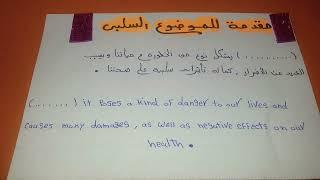 مقدمة للموضوع السلبى
(..........) يشكل نوع من الخطورة على حياتنا ويسبب
العديد من الأضرار، كما له تأثيرات سلبية على صحتنا .
(.......) it Poses a kind of danger to our lives and
causes many damages, as well as negative effects on our
health .